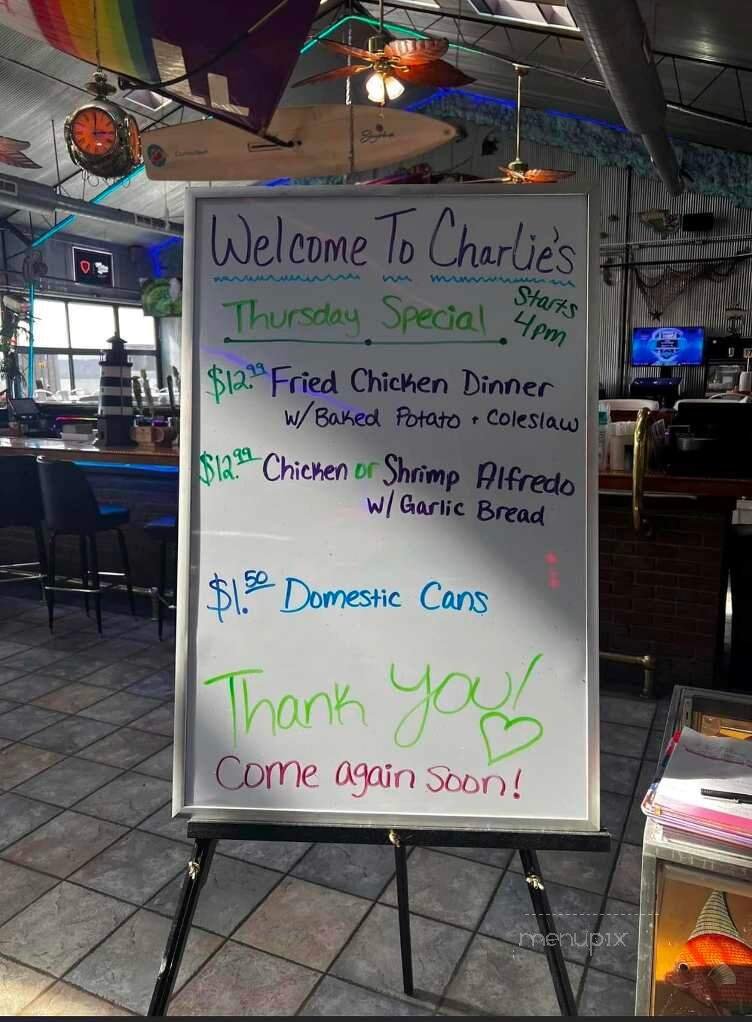 Welcome To Charlie's
Thursday Special
Starts
4pm
$12.99 Fried Chicken Dinner
W/Baked Potato + Coleslaw
$12.99 Chicken or Shrimp Alfredo
W/ Garlic Bread
$1.50 Domestic Cans
Thank You!
Come again Soon!
menupix